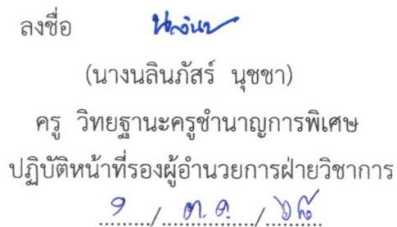 ลงชื่อ
(นางนลินภัสร์ นุชชา)
ครู วิทยฐานะครูชำนาญการพิเศษ
ปฏิบัติหน้าที่รองผู้อำนวยการฝ่ายวิชาการ
/ ต.ค. / ๖๘